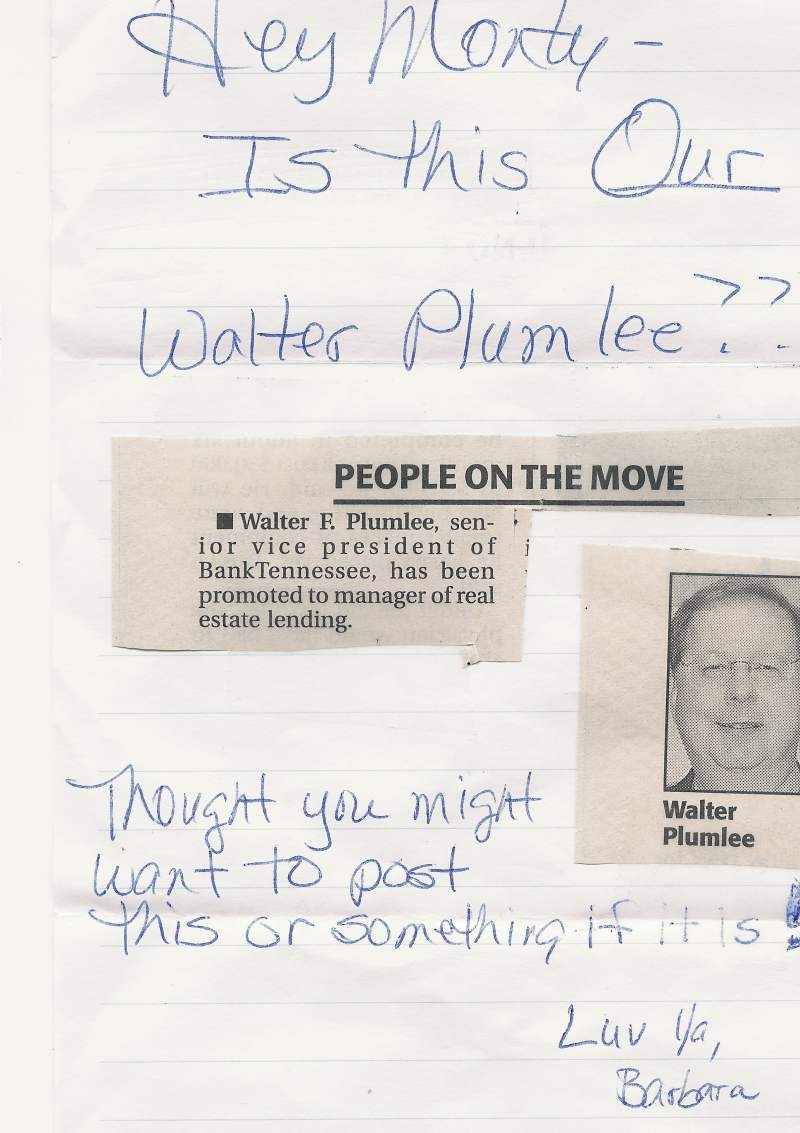 Hey Monty -
Is this Our
Walter Plumlee??
PEOPLE ON THE MOVE
■ Walter F. Plumlee, sen-
ior vice president of
BankTennessee, has been
promoted to manager of real
estate lending.
Walter
Plumlee
Thought you might
want to post
this or something if it is
Luv Ya,
Barbara